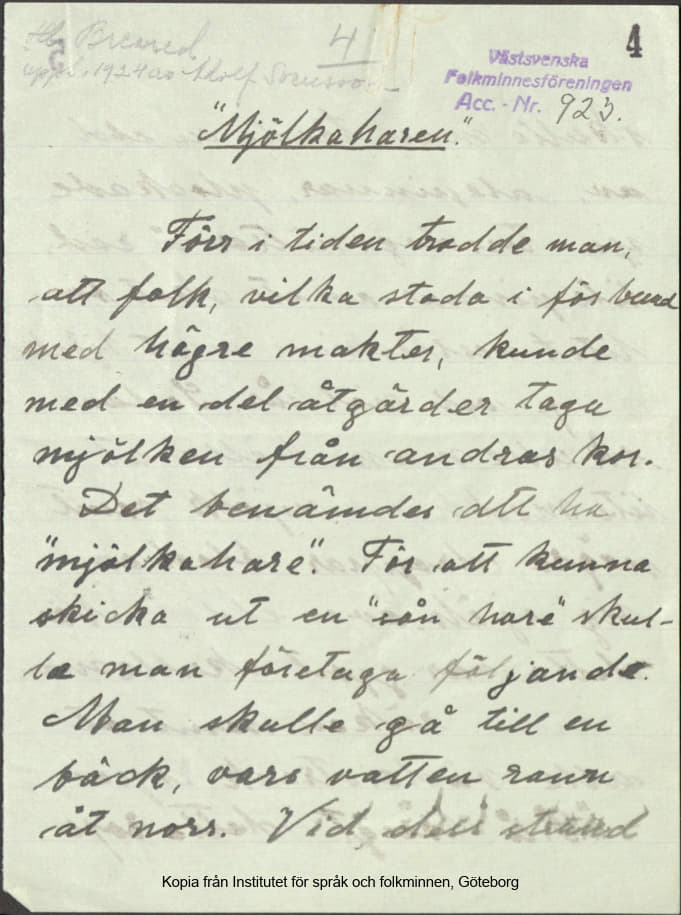 4
4
Västsvenska
Folkminnesföreningen
Acc. - Nr. 923.
1924 av Adolf
"Mjölkaharen".
Förr i tiden trodde man,
att folk, vilka stodo i förbund
med högre makter, kunde
med en del åtgärder taga
mjölken från andras kor.
Det benämdes att ha
"mjölkahare". För att kunna
skicka ut en "sån hare" skul-
le man företaga följande.
Man skulle gå till en
bäck, vars vatten rann
åt norr. Vid den strand
Kopia från Institutet för språk och folkminnen, Göteborg